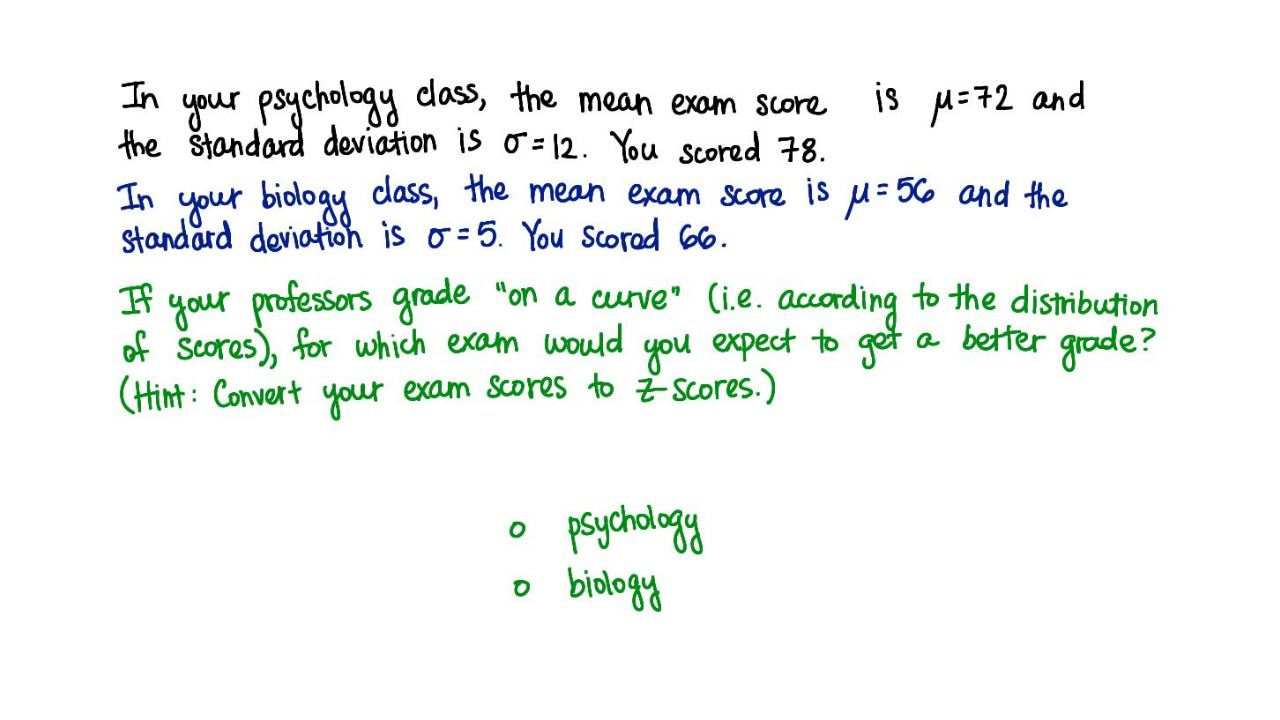 In your psychology class, the mean exam score is μ=72 and
the standard deviation is σ=12. You scored 78.
In your biology class, the mean exam score is μ=56 and the
standard deviation is σ=5. You scored 66.
If your professors grade "on a curve" (i.e. according to the distribution
of scores), for which exam would you expect to get a better grade?
(Hint: Convert your exam scores to z-scores.)
o psychology
o biology